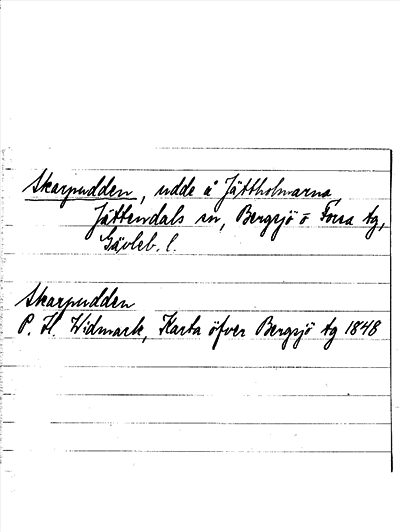 Skarpudden, udde å Jättholmarna
Jättendals sn, Bergsjö o Forsa tg,
Gävleb. l.
Skarpudden
P. H. Widmark, Karta öfver Bergsjö tg 1848